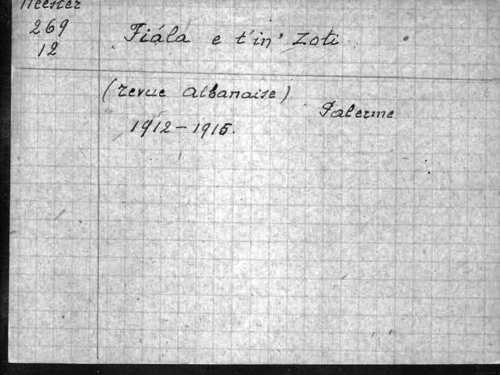 Meester
269
12
Fiála e t'in' Zoti
(revue albanaise)
Palerme
1912-1915.